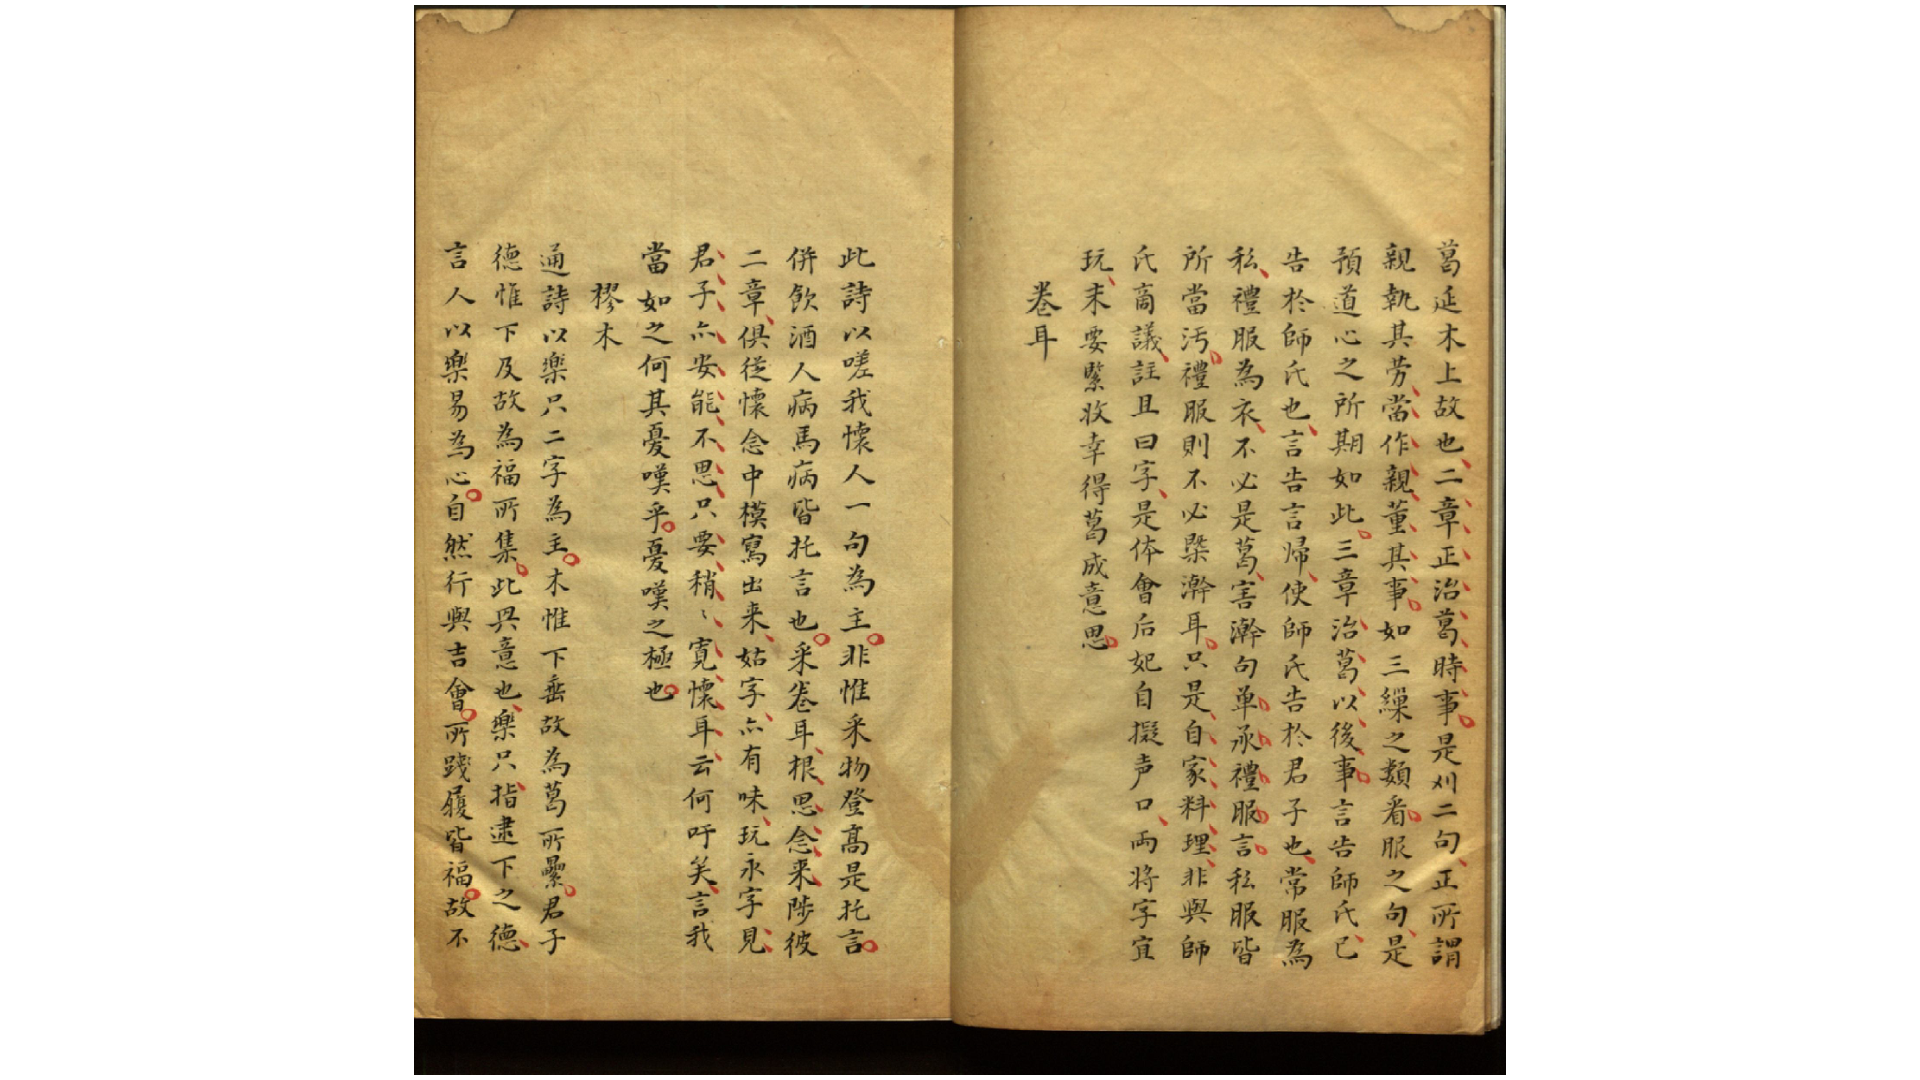 葛延木上故也二章正治葛時事是刈二句正所謂
親執其劳當作親董其事如三繅之類看服之句是
預道心之所期如此三章治葛以後事言告師氏已
告於師氏也言告言歸使師氏告於君子也常服為
私禮服為衣不必是葛害澣句单承禮服言私服皆
所當汚禮服則不必槩澣耳只是自家料理非與師
氏商議註且曰字是体會后妃自擬声口両将字宜
玩末要緊收幸得葛成意思
卷耳
此詩以嗟我懷人一句為主非惟采物登高是托言
併飲酒人病馬病皆托言也采卷耳根思念来陟彼
二章俱従懷念中模寫出来姑字亦有味玩永字見
君子亦安能不思只要稍〻寛懷耳云何吁矣言我
當如之何其憂嘆乎憂嘆之極也
樛木
通詩以樂只二字為主木惟下垂故為葛所纍君子
德惟下及故為福所集此興意也樂只指逮下之德
言人以樂易為心自然行與吉會所踐履皆福故不